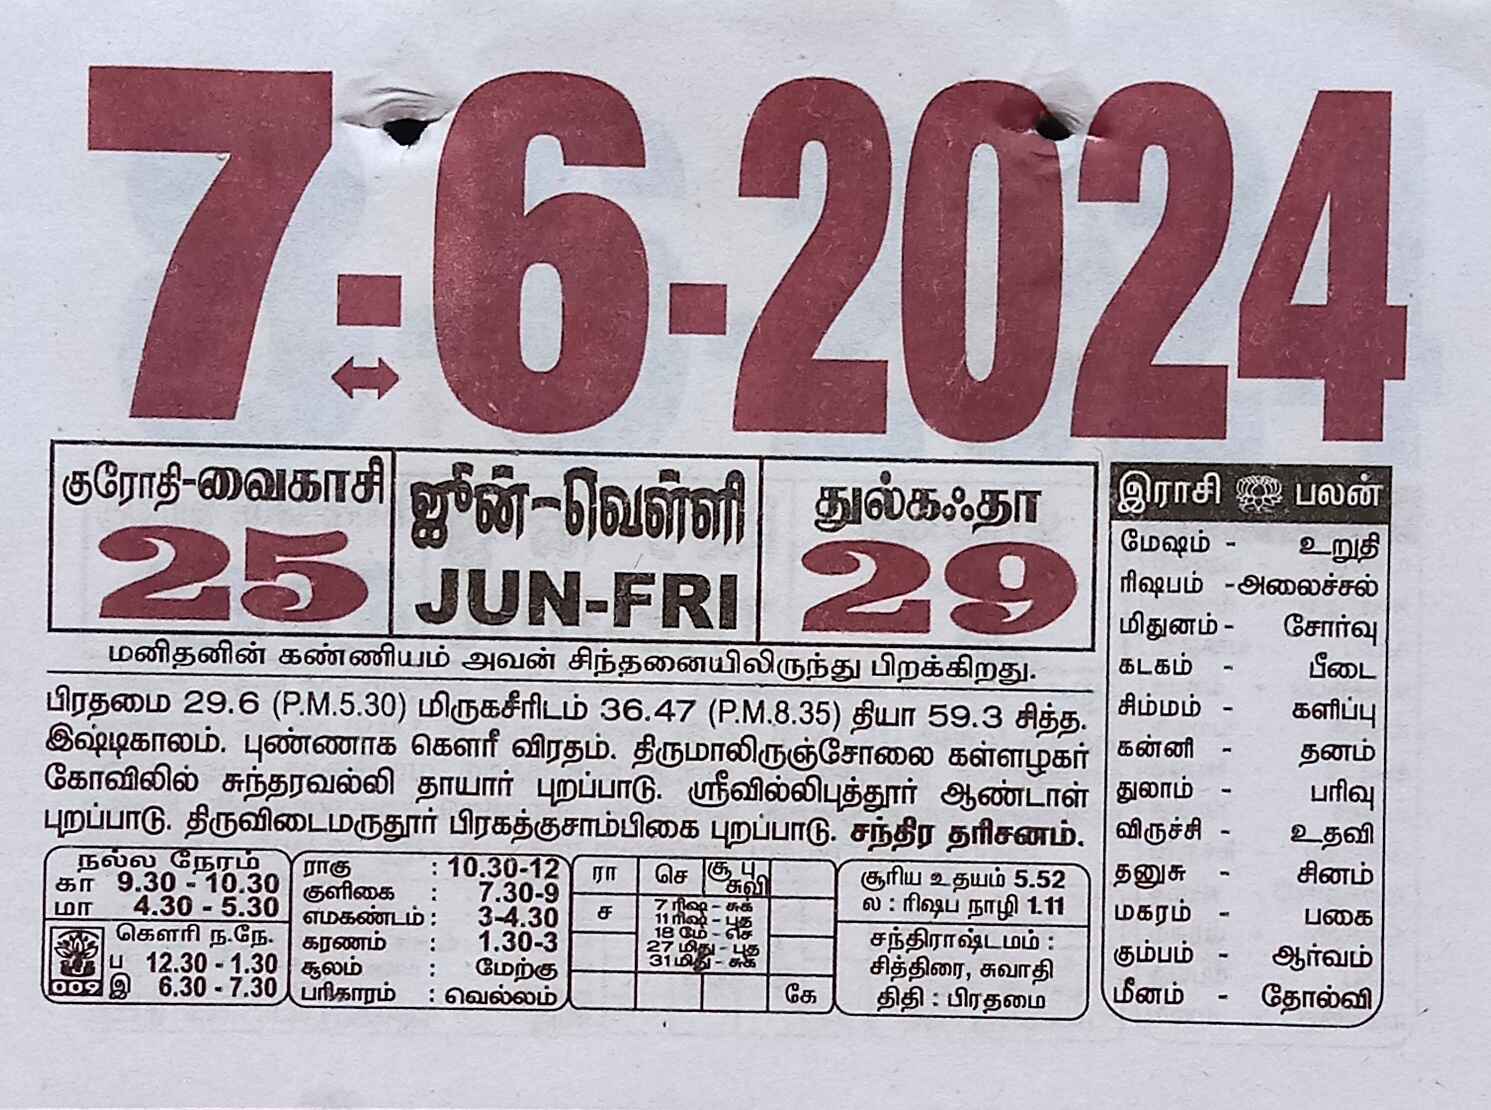 7-6-2024
குரோதி-வைகாசி
25
ஜூன்-வெள்ளி
JUN-FRI
துல்கஃதா
29
மனிதனின் கண்ணியம் அவன் சிந்தனையிலிருந்து பிறக்கிறது.
பிரதமை 29.6 (P.M.5.30) மிருகசீரிடம் 36.47 (P.M.8.35) தியா 59.3 சித்த.
இஷ்டிகாலம். புண்ணாக கௌரீ விரதம். திருமாலிருஞ்சோலை கள்ளழகர்
கோவிலில் சுந்தரவல்லி தாயார் புறப்பாடு. ஸ்ரீவில்லிபுத்தூர் ஆண்டாள்
புறப்பாடு. திருவிடைமருதூர் பிரகத்குசாம்பிகை புறப்பாடு. சந்திர தரிசனம்.
நல்ல நேரம்
கா 9.30 - 10.30
மா 4.30 - 5.30
கௌரி ந.நே.
ப 12.30 - 1.30
இ 6.30 - 7.30
009
ராகு : 10.30-12
குளிகை : 7.30-9
எமகண்டம் : 3-4.30
கரணம் : 1.30-3
சூலம் : மேற்கு
பரிகாரம் : வெல்லம்
ரா செ சூ பு
சுவி
ச
7 ரிஷ - சுக்
11 ரிஷ - புத
18 மே - செ
27 மிது - புத
31 மிது - சுக்
கே
சூரிய உதயம் 5.52
ல : ரிஷப நாழி 1.11
சந்திராஷ்டமம் :
சித்திரை, சுவாதி
திதி : பிரதமை
இராசி பலன்
மேஷம் - உறுதி
ரிஷபம் - அலைச்சல்
மிதுனம் - சோர்வு
கடகம் - பீடை
சிம்மம் - களிப்பு
கன்னி - தனம்
துலாம் - பரிவு
விருச்சி - உதவி
தனுசு - சினம்
மகரம் - பகை
கும்பம் - ஆர்வம்
மீனம் - தோல்வி